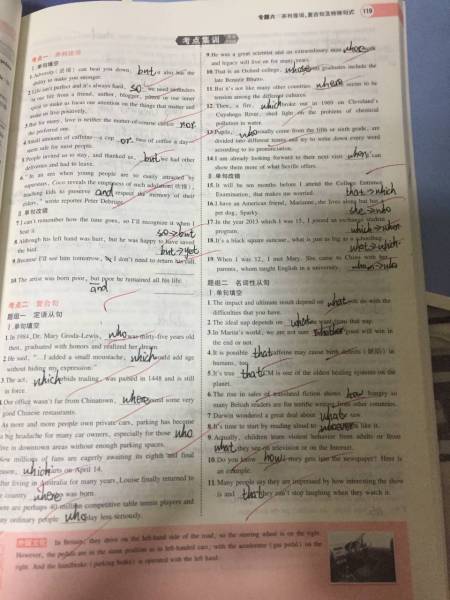 专题六 并列连词、复合句及特殊句式 119
考点集训
考点一 并列连词
Ⅰ.单句填空
1.Adversity (逆境) can beat you down, but it also has the
ability to make you stronger.
2.Life isn't perfect and it's always hard, so we need reminders
in our life from a friend, author, blogger, or our inner
voice to make us focus our attention on the things that matter and
make us live positively.
3.But for many, love is neither the matter-of-course nor
the preferred one.
4.Small amounts of caffeine—a cup or two of coffee a day—
seem safe for most people.
5.People invited us to stay, and thanked us, but we had other
deliveries and had to leave.
6."In an era when young people are so easily attracted by
superstars, Coco reveals the emptiness of such adulation (吹捧),
teaching kids to preserve and respect the memory of their
elders," wrote reporter Peter Debruge.
Ⅱ.单句改错
7.I can't remember how the tune goes, so I'll recognize it when I
hear it. so→but
8.Although his left hand was hurt, but he was happy to have saved
the bird. but→yet
9.Because I'll see him tomorrow, I don't need to return his call.
10.The artist was born poor, but poor he remained all his life.
and
考点二 复合句
题组一 定语从句
Ⅰ.单句填空
1.In 1984, Dr. Mary Groda-Lewis, who was thirty-five years old
then, graduated with honors and realized her dream.
2.He said, "...I added a small moustache, which would add age
without hiding my expression."
3.The act, which trading, was passed in 1448 and is still
in force.
4.Our office wasn't far from Chinatown, where found some very
good Chinese restaurants.
As more and more people own private cars, parking has become
a big headache for many car owners, especially for those who
live in downtown areas without enough parking spaces.
Now millions of fans are eagerly awaiting its eighth and final
season, which on April 14.
After living in Australia for many years, Louise finally returned to
the country where was born.
There are perhaps 40 million competitive table tennis players and
many ordinary people who play less seriously.
9.He was a great scientist and an extraordinary man whose
and legacy will live on for many years.
10.That is an Oxford college, whose graduates include the
late Benazir Bhutto.
11.But it's not like many other countries where seems to be
tension among the different cultures.
12.Then, a fire, which broke out in 1969 on Cleveland's
Cuyahoga River, shed light on the problems of chemical
pollution in water.
13.Pupils, who usually come from the fifth or sixth grade, are
divided into different teams and try to write down every word
according to its pronunciation.
14.I am already looking forward to their next visit when can
show them more of what Seville offers.
Ⅱ.单句改错
15.It will be ten months before I attend the College Entrance
Examination, that makes me worried. that→which
16.I have an American friend, Marianne, she lives along but has a
pet dog, Sparky. she→who
17.In the year 2013 which I was 15, I joined an exchange student
program. which→when
18.It's a black square suitcase, what is just as big as a
what→which
19.When I was 12, I met Mary. She came to China with her
parents, whom taught English in a university. whom→who
题组二 名词性从句
Ⅰ.单句填空
1.The impact and ultimate result depend on what you do with the
difficulties that you have.
2.The ideal nap depends on what you want from that nap.
3.In Marita's world, we are not sure whether good will win in
the end or not.
4.It is possible that caffeine may cause birth defects (缺陷) in
humans, too.
5.It's true that TCM is one of the oldest healing systems on the
planet.
6.The rise in sales of translated fiction shows how hungry so
many British readers are for terrific writing from other countries.
7.Darwin wondered a great deal about what saw.
8.It's time to start by reading aloud to whoever like it.
9.Actually, children learn violent behavior from adults or from
what they see on television or on the Internet.
10.Do you know how a story gets into the newspaper? Here is
an example.
11.Many people say they are impressed by how interesting the show
is and that they can't stop laughing when they watch it.
In Britain, they drive on the left-hand side of the road, so the steering wheel is on the right.
However, the pedals are in the same position as in left-handed cars, with the accelerator (gas pedal) on the
right. And the handbrake (parking brake) is operated with the left hand.